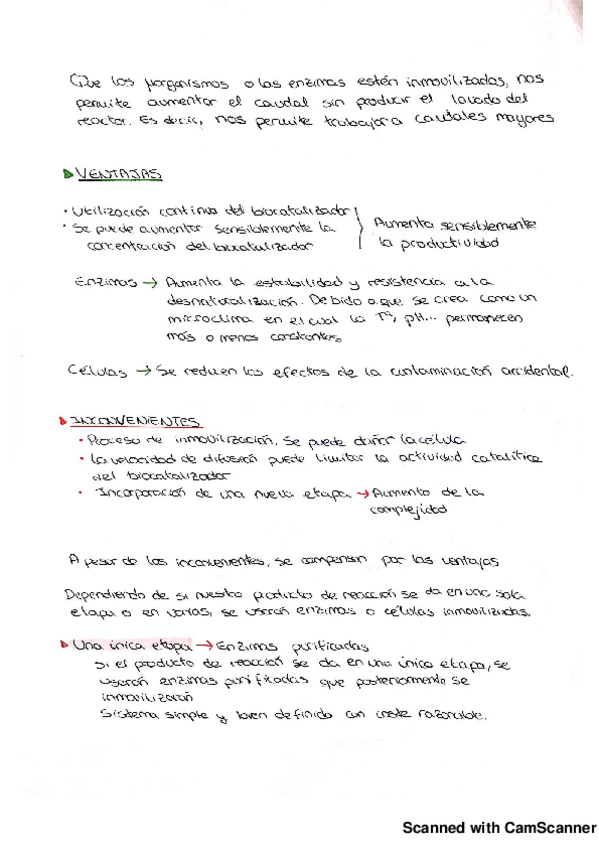 Que los μorganismos o las enzimas estén inmovilizadas, nos
permite aumentar el caudal sin producir el lavado del
reactor. Es decir, nos permite trabajar a caudales mayores
VENTAJAS
· Utilización continua del biocatalizador
· Se puede aumentar sensiblemente la
concentración del biocatalizador
Aumenta sensiblemente
la productividad
Enzimas → Aumenta la estabilidad y resistencia a la
desnaturalización. Debido a que se crea como un
microclima en el cual la Tª, pH... permanecen
más o menos constantes
Células → Se reducen los efectos de la contaminación accidental.
INCONVENIENTES
· Proceso de inmovilización. Se puede dañar la célula
· La velocidad de difusión puede limitar la actividad catalítica
del biocatalizador
· Incorporación de una nueva etapa → Aumento de la
complejidad
A pesar de los inconvenientes, se compensan por las ventajas
Dependiendo de si nuestro producto de reacción se da en una sola
etapa o en varias, se usarán enzimas o células inmovilizadas.
Una única etapa → Enzimas purificadas
Si el producto de reacción se da en una única etapa, se
usarán enzimas purificadas que posteriormente se
inmovilizarán
Sistema simple y bien definido con coste razonable.
Scanned with CamScanner